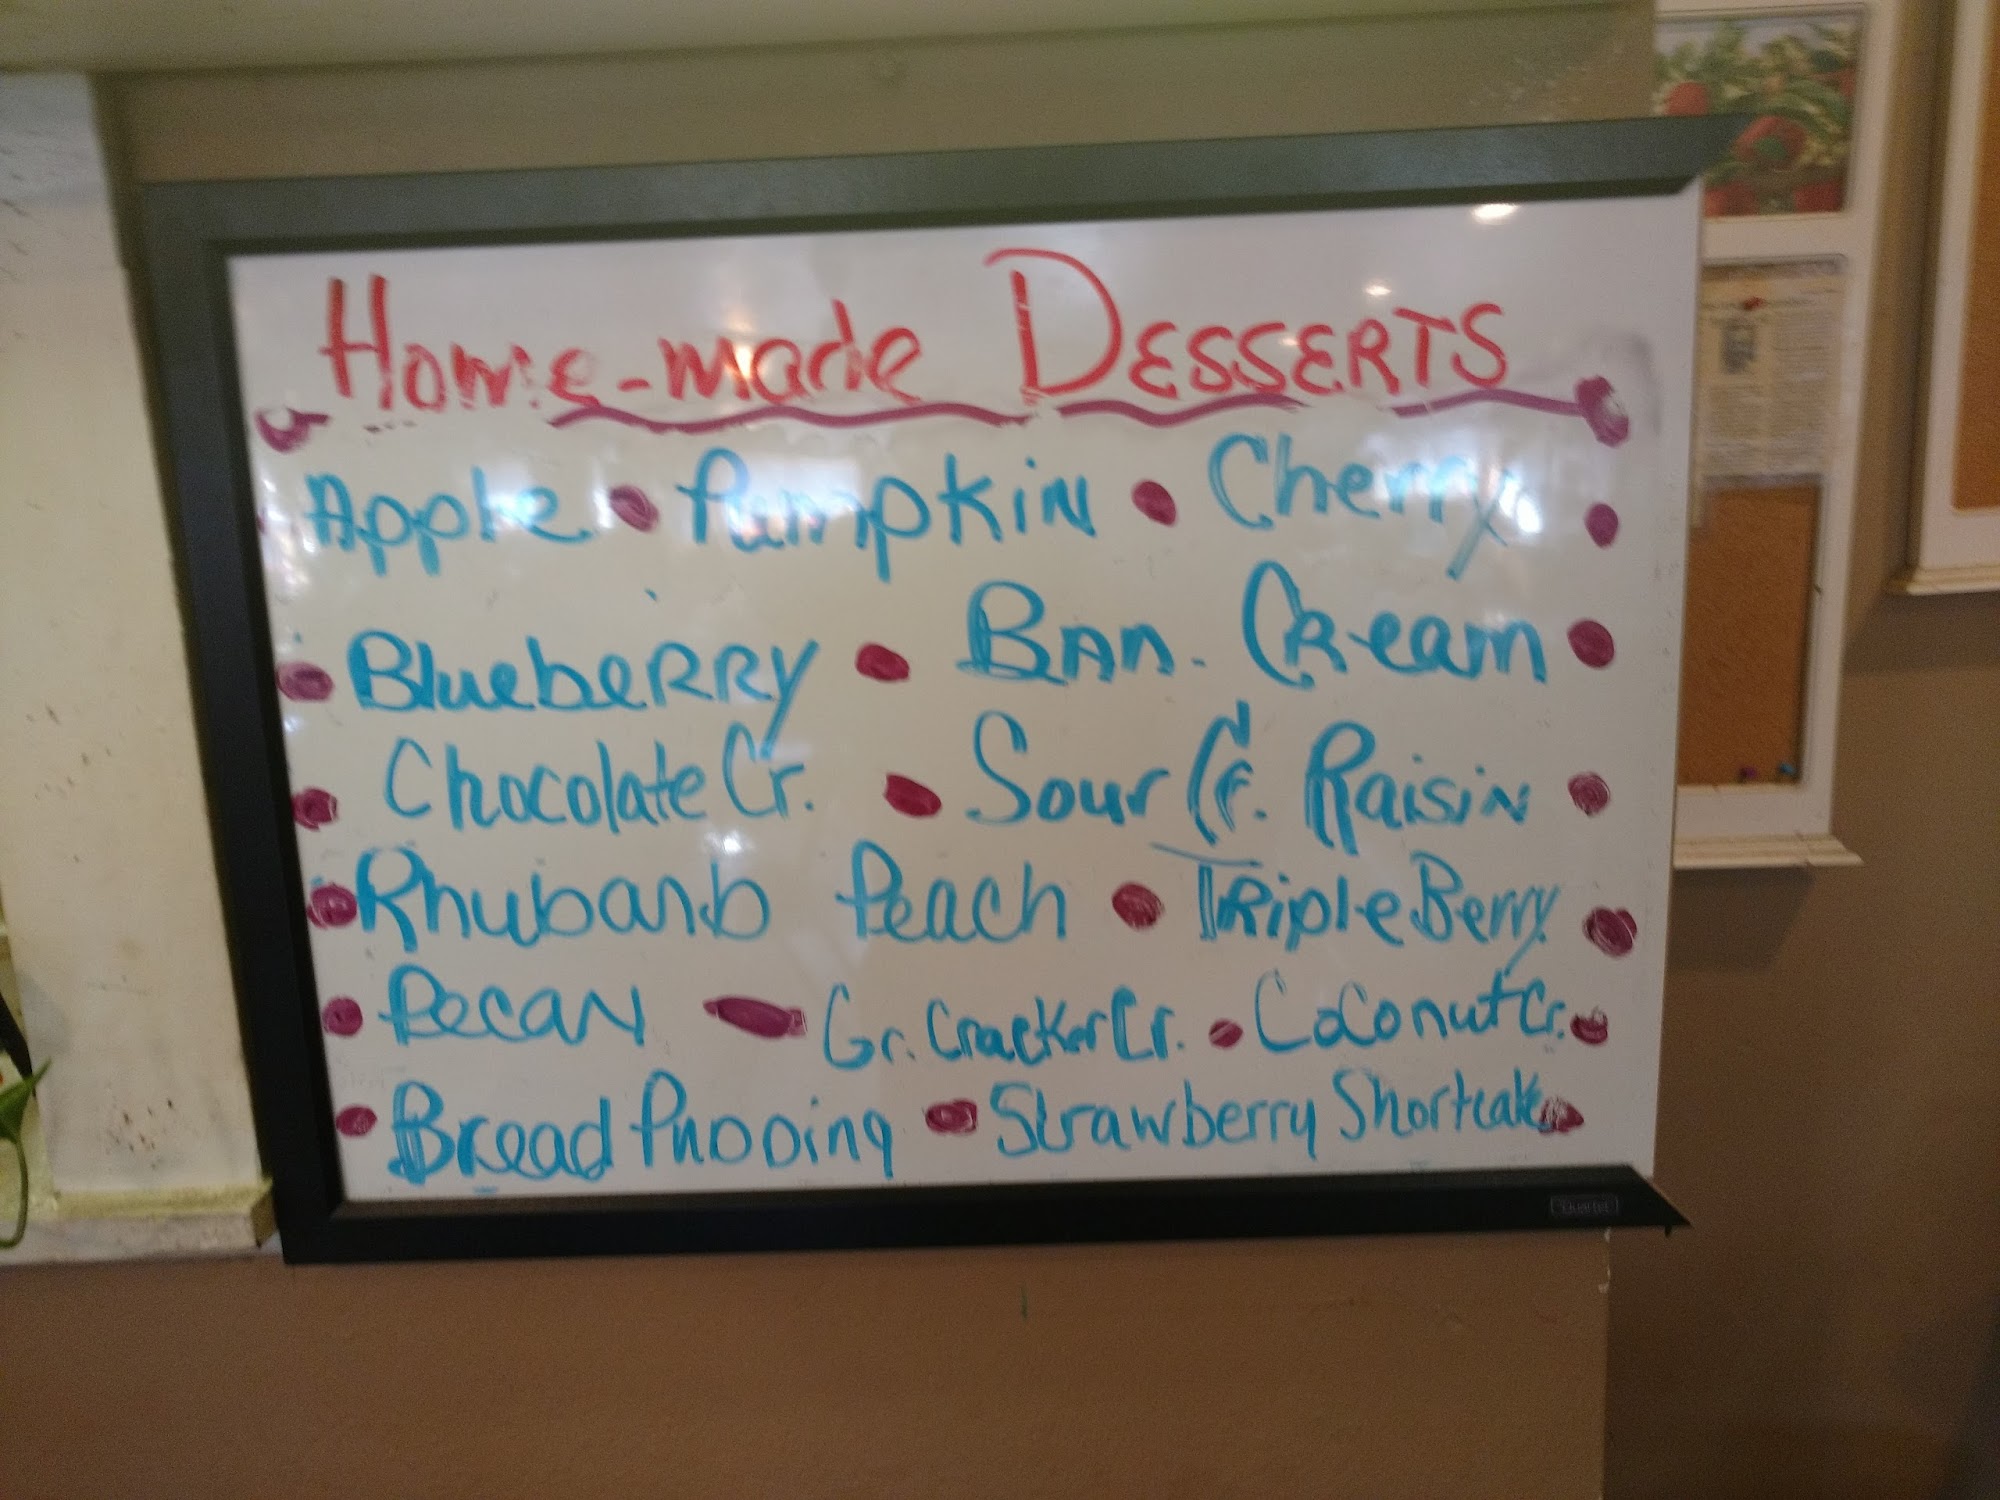 Home-made Desserts
Apple • Pumpkin • Cherry •
• Blueberry • Ban. Cream •
• Chocolate Cr. • Sour Cr. Raisin •
• Rhubarb Peach • Triple Berry •
• Pecan • Gr. Cracker Cr. • Coconut Cr. •
• Bread Pudding • Strawberry Shortcake •
Quartet